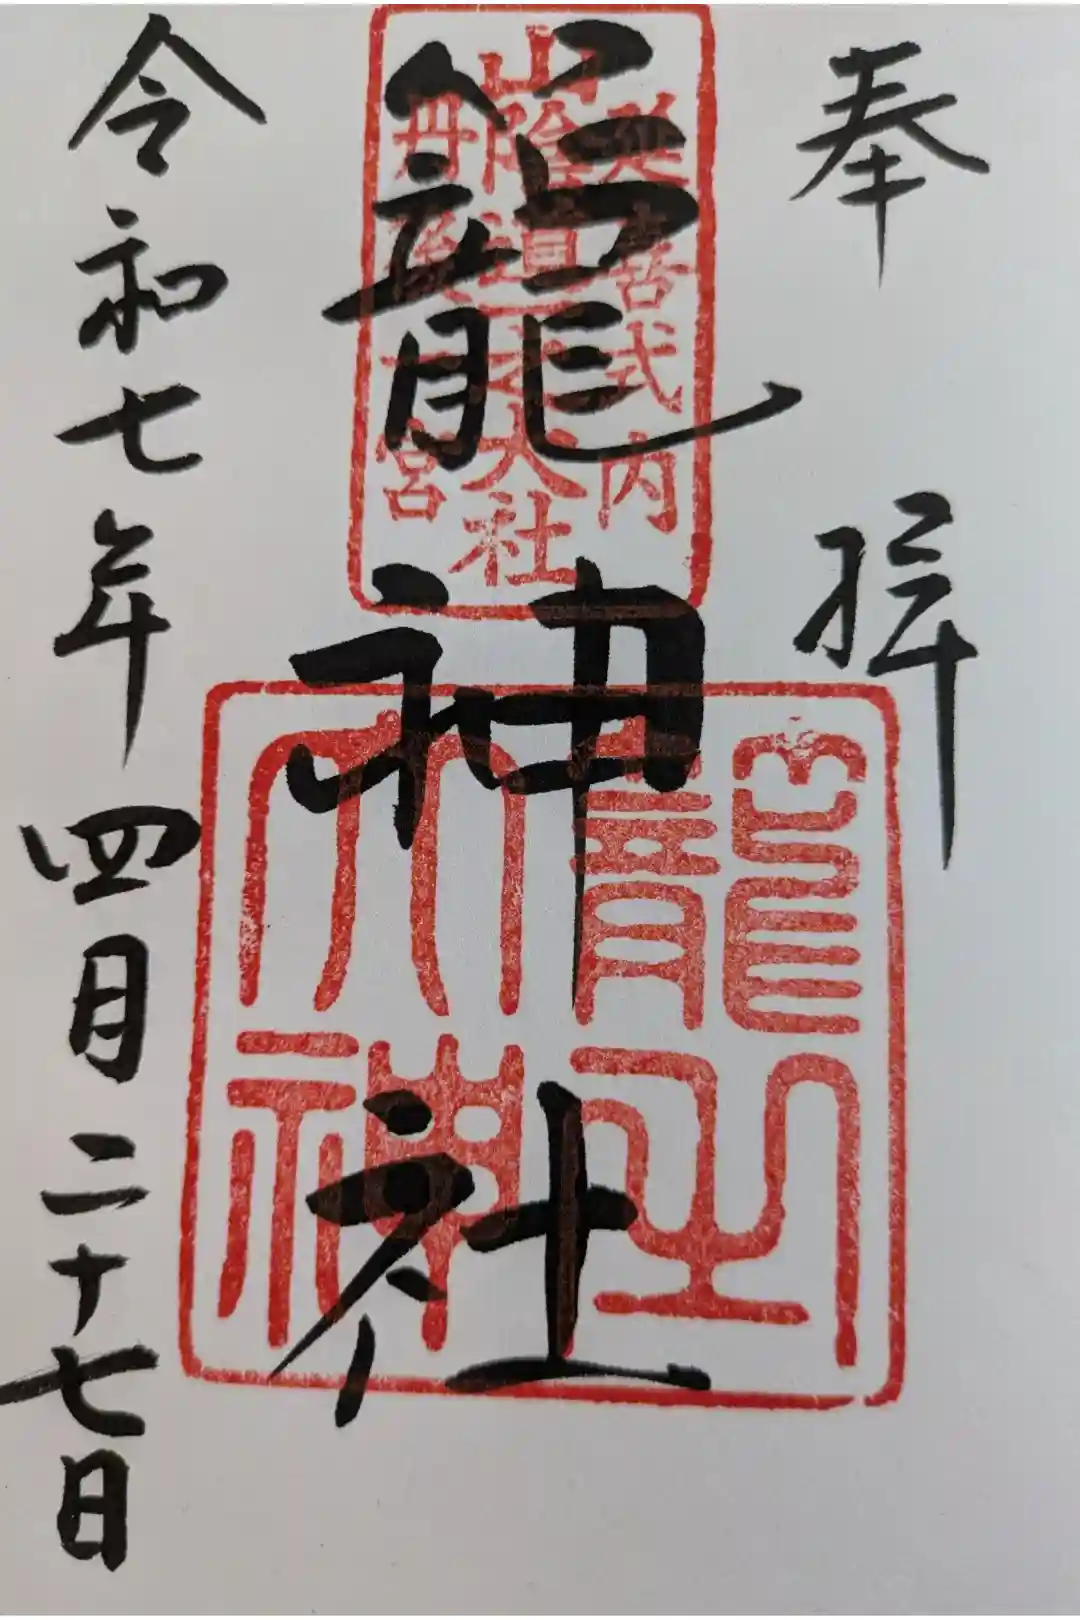 奉拝
延喜式内
山陰道一之大社
丹後一宮
籠神社
籠之大神
令和七年四月二十七日